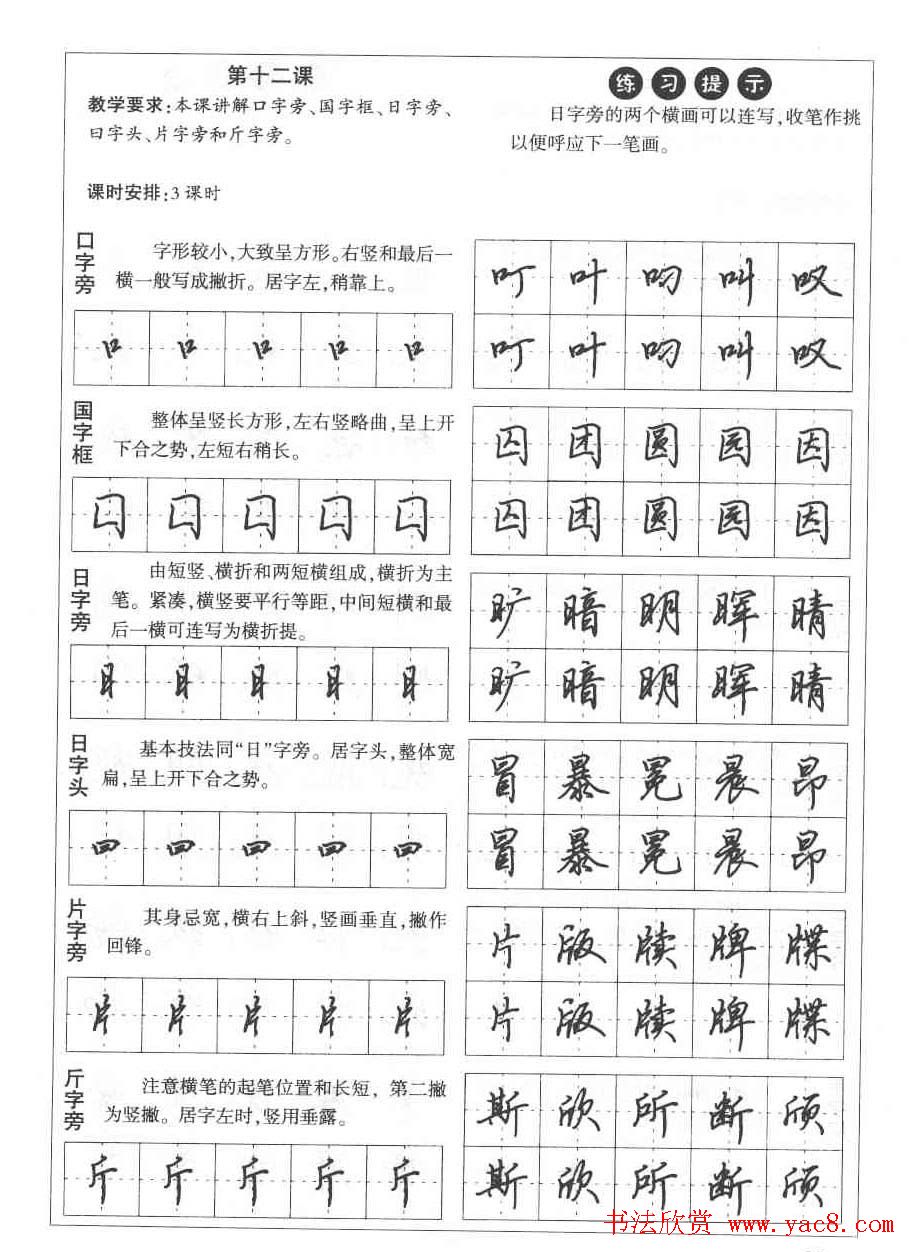 第十二课
教学要求:本课讲解口字旁、国字框、日字旁、
曰字头、片字旁和斤字旁。
课时安排:3课时
练习提示
日字旁的两个横画可以连写,收笔作挑
以便呼应下一笔画。
口字旁
字形较小,大致呈方形。右竖和最后一
横一般写成撇折。居字左,稍靠上。
口 口 口 口 口
叮 叶 吻 叫 叹
叮 叶 吻 叫 叹
国字框
整体呈竖长方形,左右竖略曲,呈上开
下合之势,左短右稍长。
囗 囗 囗 囗 囗
囚 团 圆 园 因
囚 团 圆 园 因
日字旁
由短竖、横折和两短横组成,横折为主
笔。紧凑,横竖要平行等距,中间短横和最
后一横可连写为横折提。
日 日 日 日 日
旷 暗 明 晖 晴
旷 暗 明 晖 晴
日字头
基本技法同“日”字旁。居字头,整体宽
扁,呈上开下合之势。
曰 曰 曰 曰 曰
冒 暴 冕 晨 昂
冒 暴 冕 晨 昂
片字旁
其身忌宽,横右上斜,竖画垂直,撇作
回锋。
片 片 片 片 片
片 版 牍 牌 牒
片 版 牍 牌 牒
斤字旁
注意横笔的起笔位置和长短,第二撇
为竖撇。居字左时,竖用垂露。
斤 斤 斤 斤 斤
斯 欣 所 断 颀
斯 欣 所 断 颀
书法欣赏 www.yac8.com